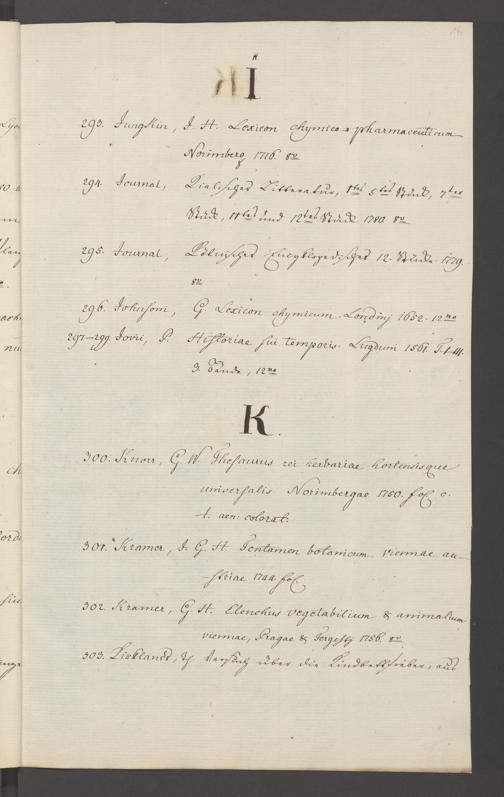 I
293. Jungkin, J. H. Lexicon chymico pharmaceuticum
Norimberg 1716. 8vo
294. Journal, Litteratur, 1tes 5tes Stück, 7tes
Stück, 11tes und 12tes Stück 1780. 8vo
295. Journal, Encyklopedisches 12. Stücke. 1779.
8vo
296. Johnsoni, G. Lexicon chymicum. Londinj 1652. 12mo
297–299. Jovii, P. Historiae sui temporis. Lugdum 1561. T. I–III.
3. Bände, 12mo
K.
300. Knorr, G W Thesaurus rei herbariae hortensisque
universalis Norimbergae 1750. fol. c.
t. aen: colorat:
301. Kramer, J. G. H. Tentamen botanicum viennae au-
striae 1744. fol.
302. Kramer, G. H. Elenchus vegetabilium & animalium
viennae, Pragae & Tergesti 1756. 8vo
303. Kirkland, Versuch über die Kindbettfieber, aus